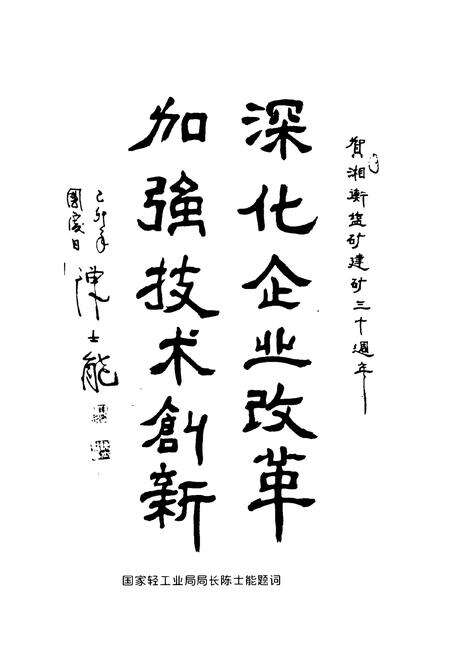 賀湘衡盐矿建矿三十週年
深化企业改革
加强技术創新
己卯年
國慶日
陳士能
国家轻工业局局长陈士能题词